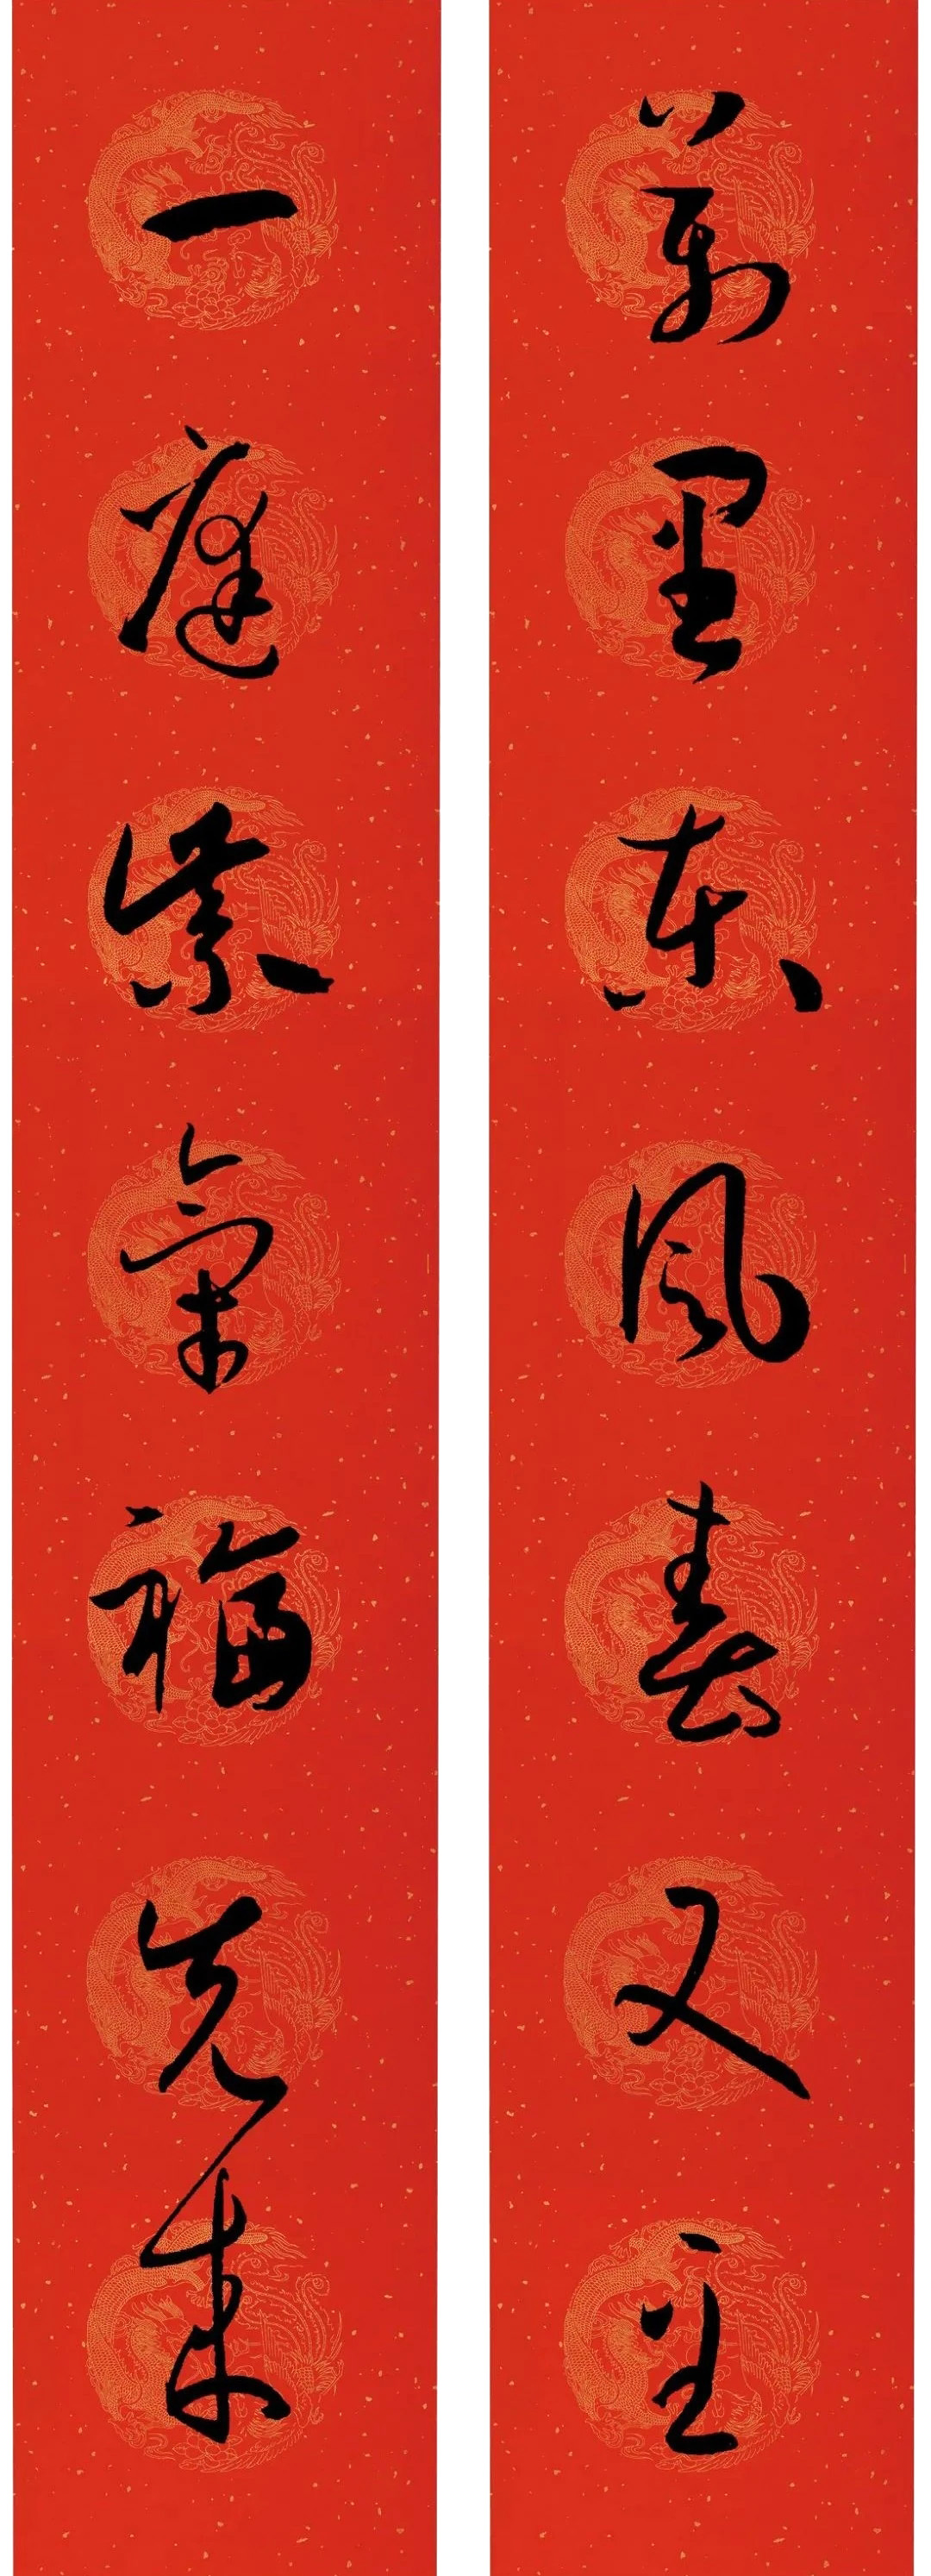 萬里東風春又至
一庭紫氣福先來